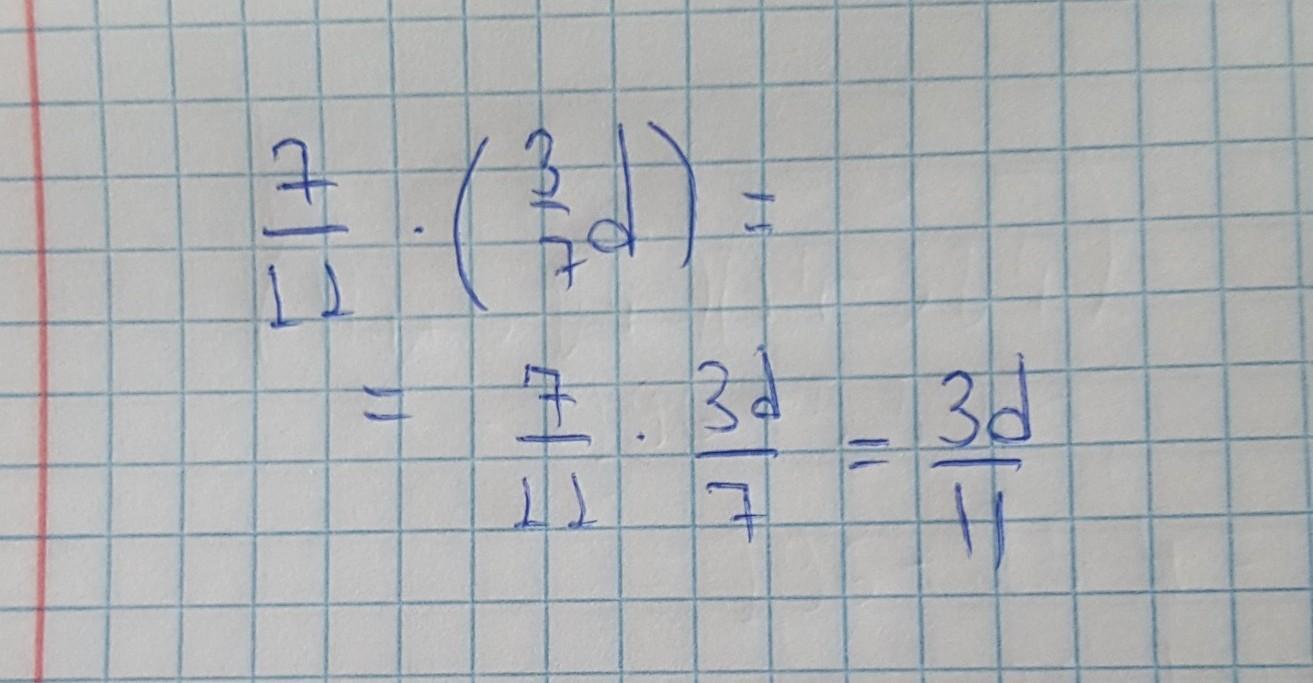 7/11 · (3/7 d) =
= 7/11 · 3d/7 = 3d/11